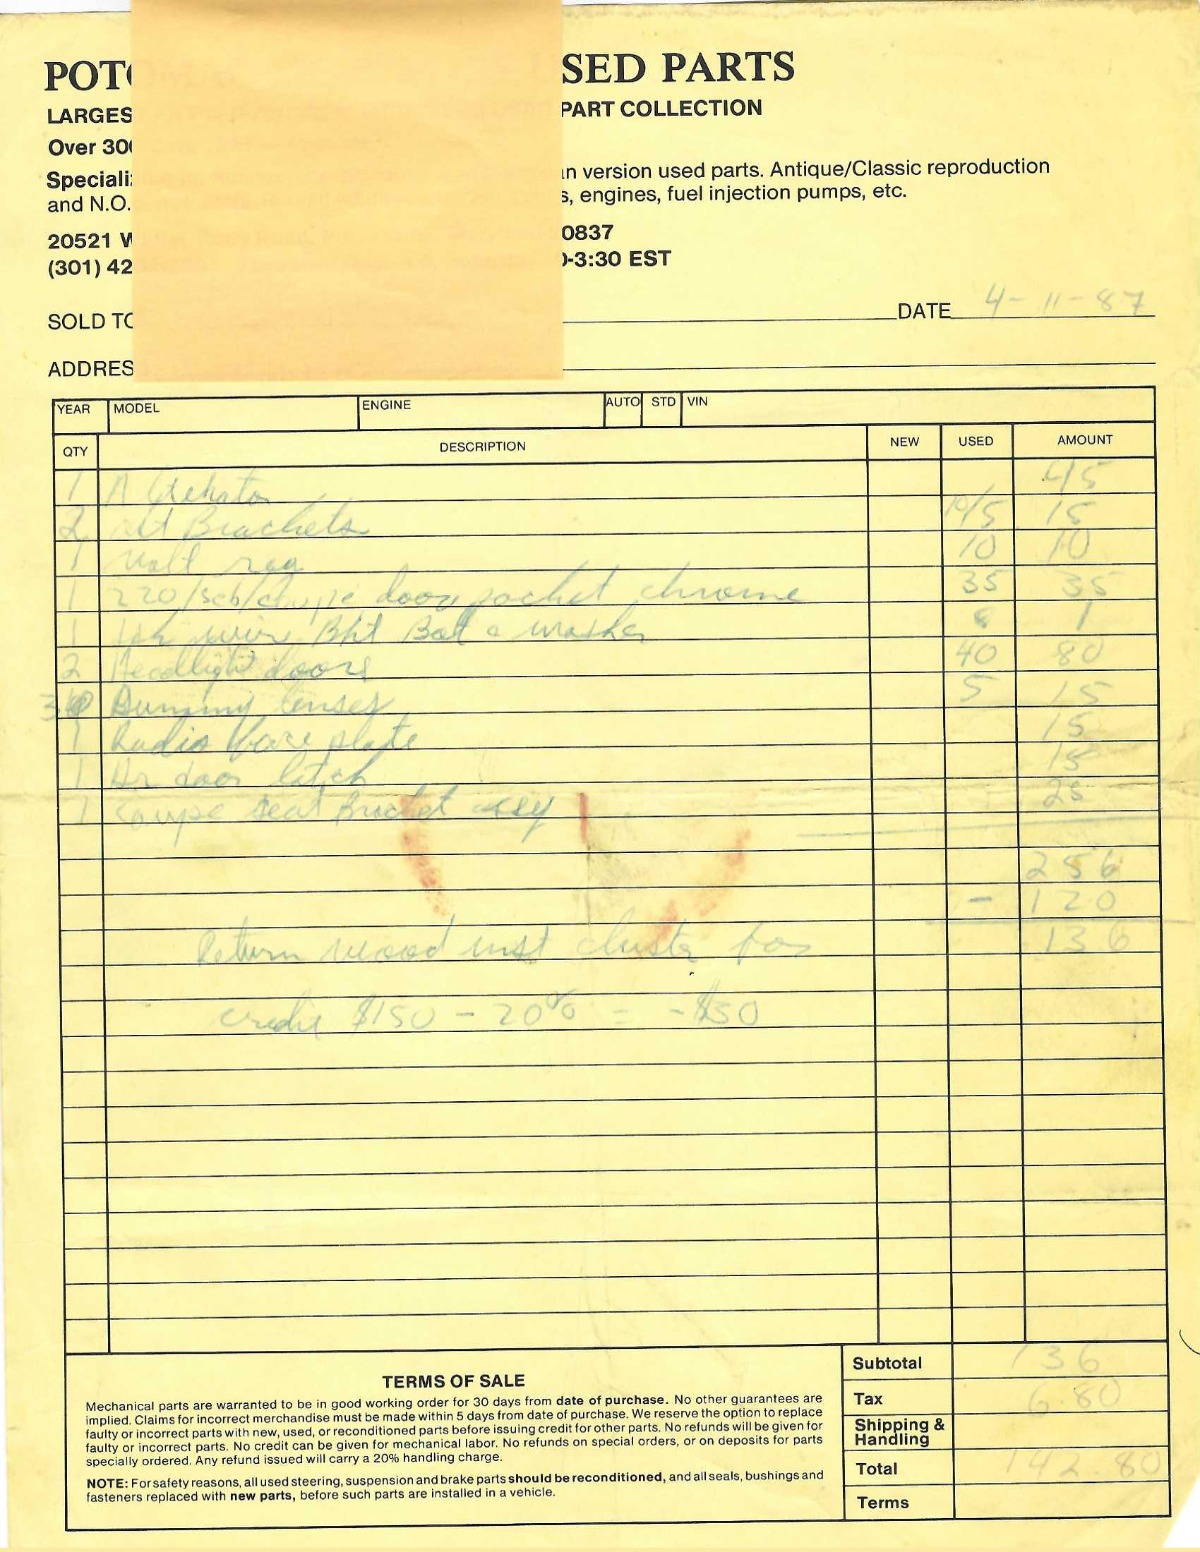 POTO SED PARTS
LARGES PART COLLECTION
Over 300
Speciali: in version used parts. Antique/Classic reproduction
and N.O. s, engines, fuel injection pumps, etc.
20521 W 0837
(301) 42 0-3:30 EST
SOLD TO DATE 4-11-87
ADDRES
YEAR MODEL ENGINE AUTO STD VIN
QTY DESCRIPTION NEW USED AMOUNT
1 45
2 alt Brackets 10/5 15
1 Volt reg 10 10
1 220/seb/coupe door pocket chrome 35 35
1 Bolt & washer 1
2 Headlight doors 40 80
3 Dummy lenses 5 15
1 Radio face plate 15
1 door latch 15
1 Coupe seat Bracket assy 25
256
- 120
136
Return wood inst cluster for
credit $150 - 20% = -$30
Subtotal 136
Tax 6.80
Shipping &
Handling
Total 142.80
Terms
TERMS OF SALE
Mechanical parts are warranted to be in good working order for 30 days from date of purchase. No other guarantees are
implied. Claims for incorrect merchandise must be made within 5 days from date of purchase. We reserve the option to replace
faulty or incorrect parts with new, used, or reconditioned parts before issuing credit for other parts. No refunds will be given for
faulty or incorrect parts. No credit can be given for mechanical labor. No refunds on special orders, or on deposits for parts
specially ordered. Any refund issued will carry a 20% handling charge.
NOTE: For safety reasons, all used steering, suspension and brake parts should be reconditioned, and all seals, bushings and
fasteners replaced with new parts, before such parts are installed in a vehicle.